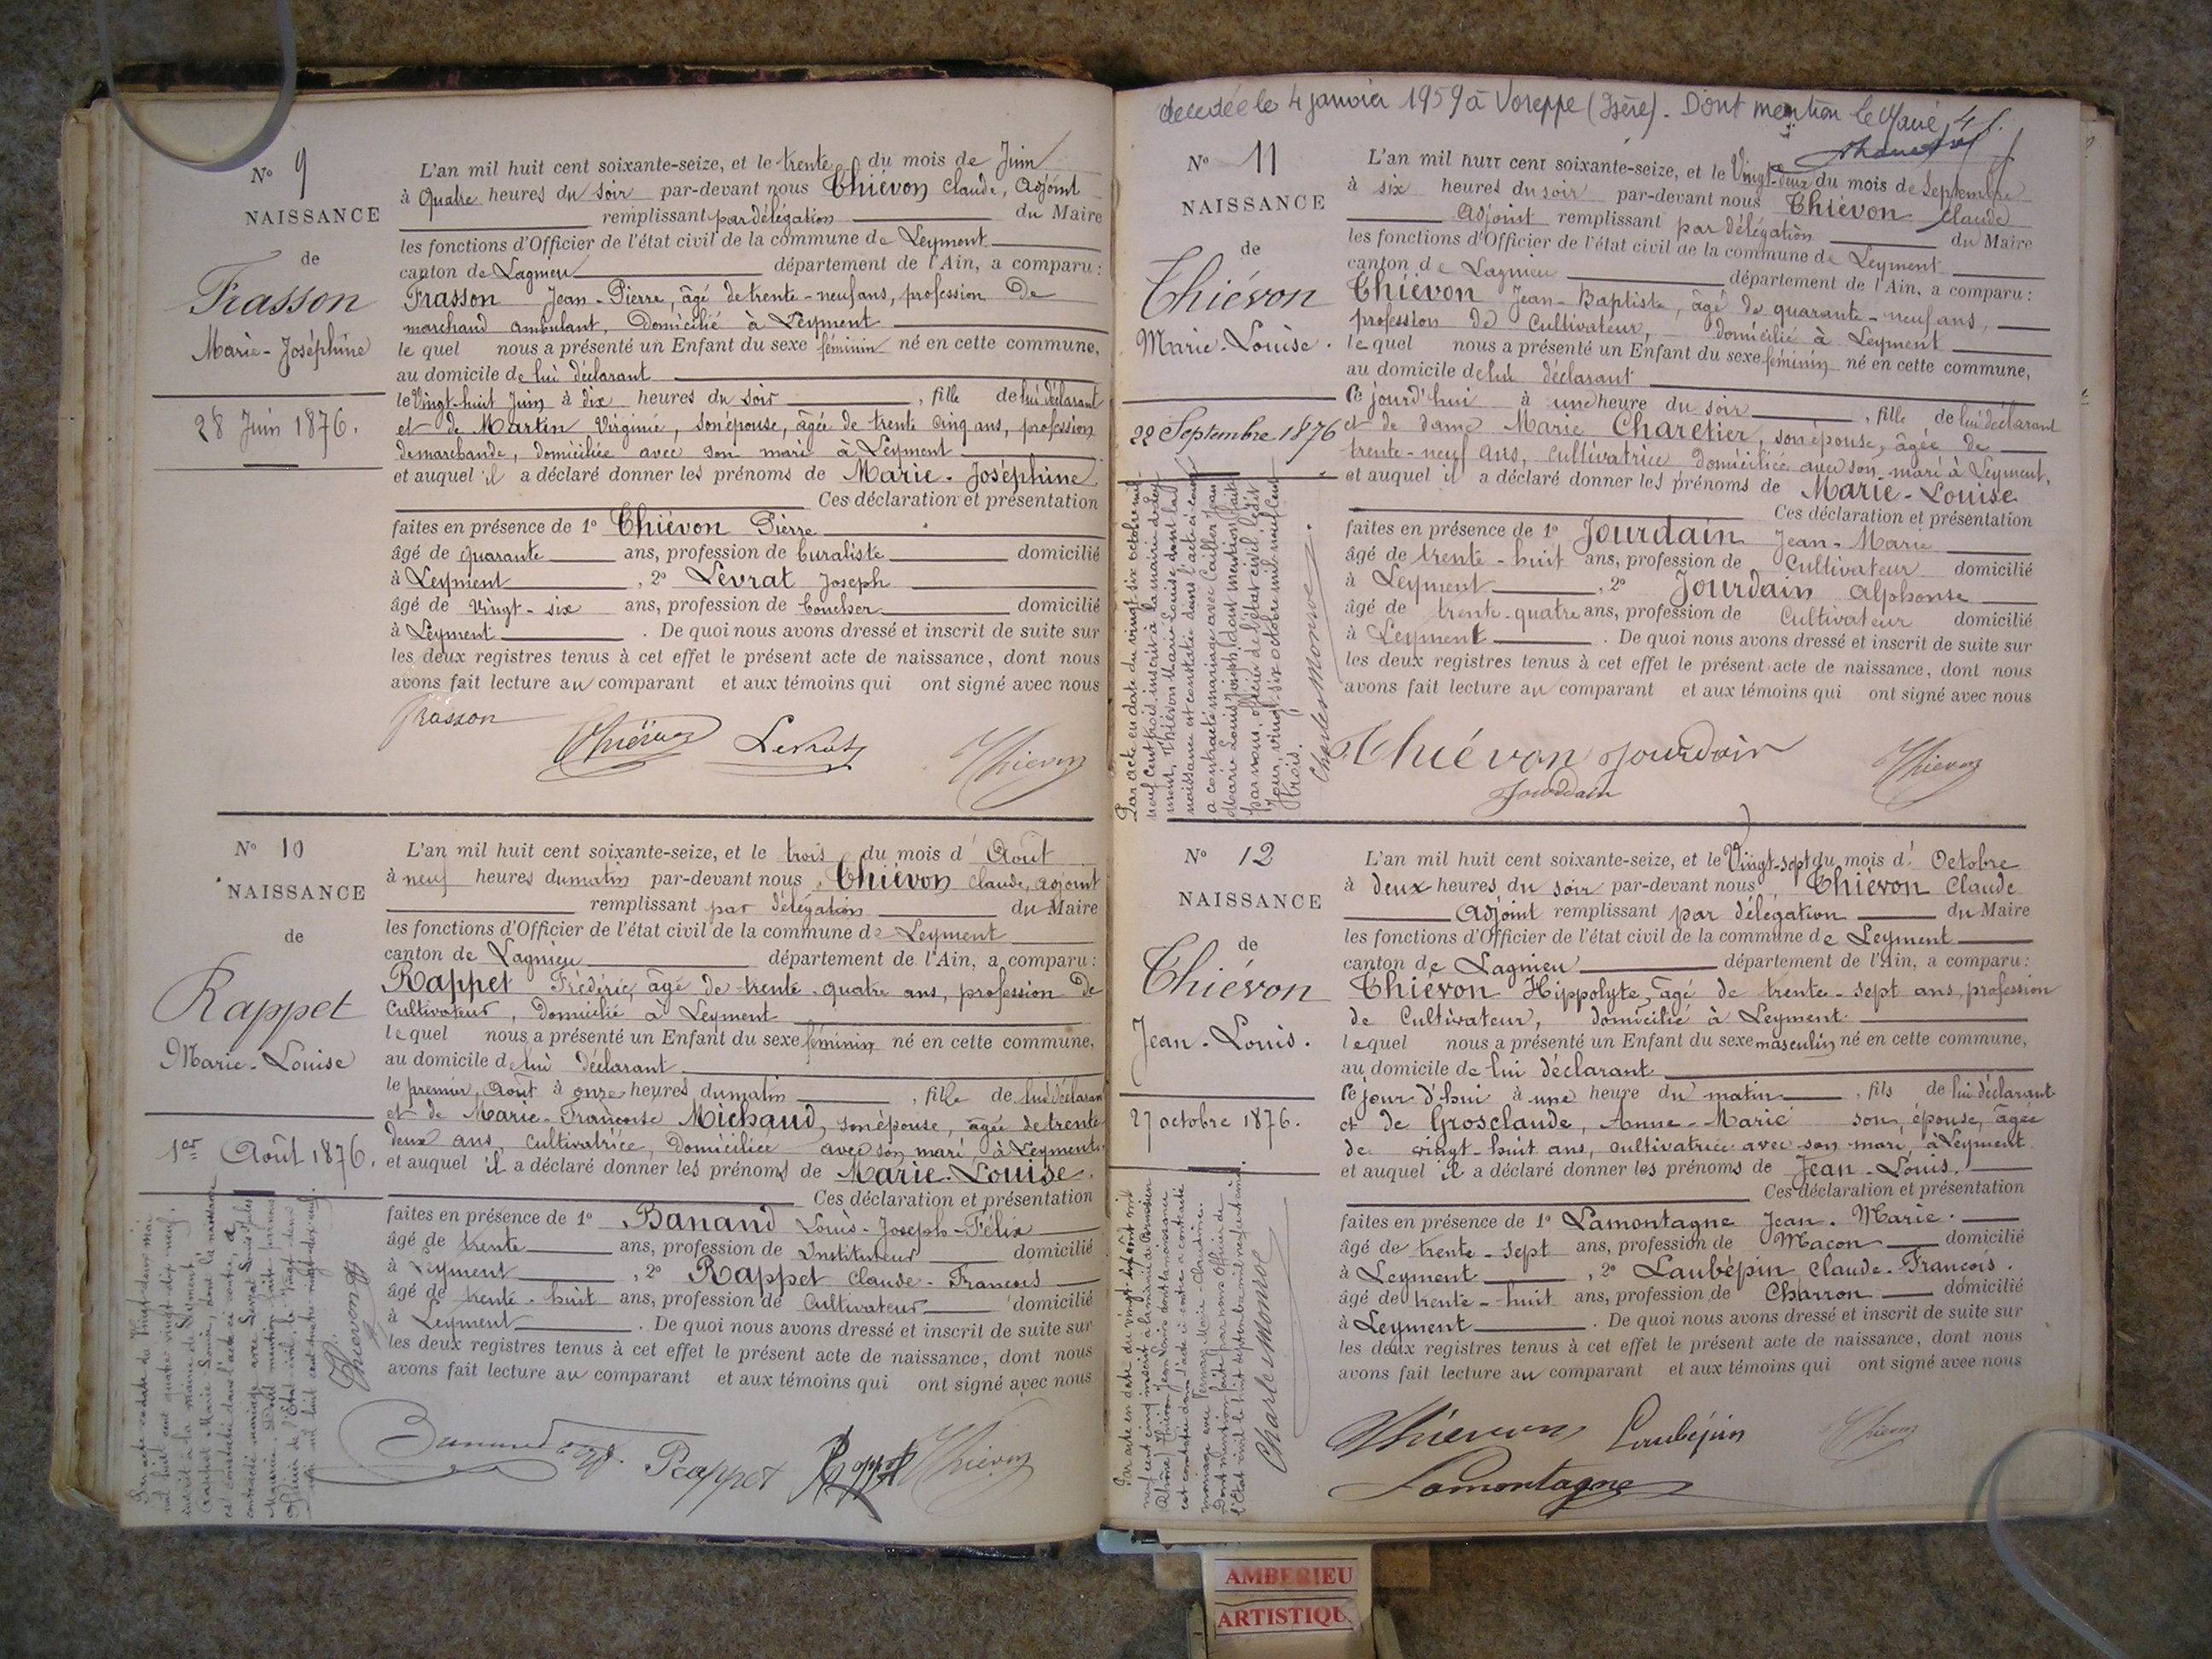 N° 9
NAISSANCE
de
Frasson
Marie-Joséphine
28 Juin 1876.
L'an mil huit cent soixante-seize, et le trente du mois de Juin
à quatre heures du soir par-devant nous Thiévon Claude, Adjoint
remplissant par délégation du Maire
les fonctions d'Officier de l'état civil de la commune de Leyment
canton de Lagnieu département de l'Ain, a comparu :
Frasson Jean-Pierre, âgé de trente-neuf ans, profession De
marchand ambulant, Domicilié à Leyment
lequel nous a présenté un Enfant du sexe féminin né en cette commune,
au domicile de lui déclarant
le Vingt-huit Juin à dix heures du soir, fille de lui déclarant
et de Martin Virginie, son épouse, âgée de trente cinq ans, profession
de marchande, domiciliée avec son mari à Leyment
et auquel il a déclaré donner les prénoms de Marie-Joséphine
Ces déclaration et présentation
faites en présence de 1° Thiévon Pierre
âgé de quarante ans, profession de buraliste domicilié
à Leyment, 2° Levrat Joseph
âgé de vingt-six ans, profession de boucher domicilié
à Leyment. De quoi nous avons dressé et inscrit de suite sur
les deux registres tenus à cet effet le présent acte de naissance, dont nous
avons fait lecture au comparant et aux témoins qui ont signé avec nous
Frasson Thiévon Levrat Thievon
N° 10
NAISSANCE
de
Rappet
Marie-Louise
1er Août 1876.
L'an mil huit cent soixante-seize, et le trois du mois d'Août
à neuf heures du matin par-devant nous, Thiévon Claude, adjoint
remplissant par délégation du Maire
les fonctions d'Officier de l'état civil de la commune de Leyment
canton de Lagnieu département de l'Ain, a comparu :
Rappet Frédéric, âgé de trente-quatre ans, profession De
Cultivateur, Domicilié à Leyment
lequel nous a présenté un Enfant du sexe féminin né en cette commune,
au domicile de lui déclarant
le premier Août à onze heures du matin, fille de lui déclarant
et de Marie-Françoise Michaud, son épouse, âgée de trente
deux ans, Cultivatrice, Domiciliée avec son mari, à Leyment.
et auquel il a déclaré donner les prénoms de Marie-Louise.
Ces déclaration et présentation
faites en présence de 1° Banand Louis-Joseph-Félix
âgé de trente ans, profession de Instituteur domicilié
à Leyment, 2° Rappet Claude-François
âgé de trente-huit ans, profession de Cultivateur domicilié
à Leyment. De quoi nous avons dressé et inscrit de suite sur
les deux registres tenus à cet effet le présent acte de naissance, dont nous
avons fait lecture au comparant et aux témoins qui ont signé avec nous
Par acte en date du Vingt-deux mai
mil huit cent quatre vingt dix neuf,
inscrit à la mairie de Leyment,
Rappet Marie-Louise, dont la naissance
est constatée dans l'acte ci contre, a
contracté mariage avec Levrat Louis Jules
Thievon
Banand Rappet Rappet Thievon
décédée le 4 janvier 1959 à Voreppe (Isère). Dont mention le Maire,
N° 11
NAISSANCE
de
Thiévon
Marie-Louise.
22 Septembre 1876
L'an mil huit cent soixante-seize, et le Vingt-deux du mois de Septembre
à six heures du soir par-devant nous Thiévon Claude
Adjoint remplissant par délégation du Maire
les fonctions d'Officier de l'état civil de la commune de Leyment
canton de Lagnieu département de l'Ain, a comparu :
Thiévon Jean-Baptiste, âgé de quarante-neuf ans,
profession de Cultivateur, domicilié à Leyment
lequel nous a présenté un Enfant du sexe féminin né en cette commune,
au domicile de lui déclarant
ce jourd'hui à une heure du soir, fille de lui déclarant
et de dame Marie Charetier, son épouse, âgée de
trente-neuf ans, Cultivatrice domiciliée avec son mari à Leyment,
et auquel il a déclaré donner les prénoms de Marie-Louise
Ces déclaration et présentation
faites en présence de 1° Jourdain Jean-Marie
âgé de trente-huit ans, profession de Cultivateur domicilié
à Leyment, 2° Jourdain Alphonse
âgé de trente-quatre ans, profession de Cultivateur domicilié
à Leyment. De quoi nous avons dressé et inscrit de suite sur
les deux registres tenus à cet effet le présent acte de naissance, dont nous
avons fait lecture au comparant et aux témoins qui ont signé avec nous
Par acte en date du vingt-six octobre mil
neuf cent trois, inscrit à la mairie de Ley
ment, Thiévon Marie-Louise dont la
naissance est constatée dans l'acte ci-contre
a contracté mariage avec Caillet Jean
Marie Louis Joseph, dont mention faite
par nous, officier de l'état civil, ledit
jour, vingt-six octobre mil neuf cent
trois.
Charles Monnet
Thiévon Jourdain Thievon
Jourdain
N° 12
NAISSANCE
de
Thiévon
Jean-Louis.
27 octobre 1876.
L'an mil huit cent soixante-seize, et le Vingt-sept du mois d'Octobre
à deux heures du soir par-devant nous, Thiévon Claude
Adjoint remplissant par délégation du Maire
les fonctions d'Officier de l'état civil de la commune de Leyment
canton de Lagnieu département de l'Ain, a comparu :
Thiévon Hippolyte, âgé de trente-sept ans, profession
de Cultivateur, domicilié à Leyment
lequel nous a présenté un Enfant du sexe masculin né en cette commune,
au domicile de lui déclarant
ce jour d'hui à une heure du matin, fils de lui déclarant
et de Grosclaude, Anne-Marie son épouse, âgée
de vingt-huit ans, cultivatrice avec son mari, à Leyment
et auquel il a déclaré donner les prénoms de Jean-Louis.
Ces déclaration et présentation
faites en présence de 1° Lamontagne Jean-Marie.
âgé de trente-sept ans, profession de Maçon domicilié
à Leyment, 2° Laubépin, Claude-François.
âgé de trente-huit ans, profession de Charron domicilié
à Leyment. De quoi nous avons dressé et inscrit de suite sur
les deux registres tenus à cet effet le présent acte de naissance, dont nous
avons fait lecture au comparant et aux témoins qui ont signé avec nous
Par acte en date du vingt août mil
neuf cent cinq inscrit à la mairie de
(Rhône) Thiévon Jean Louis dont la naissance
est constatée dans l'acte ci-contre a contracté
mariage avec Marie-Claudine.
Dont mention faite par nous Officier de
l'État civil le huit septembre mil neuf cent cinq
Charles Monnet
Thiévon Laubépin Thievon
Lamontagne
AMBERIEU
ARTISTIQU